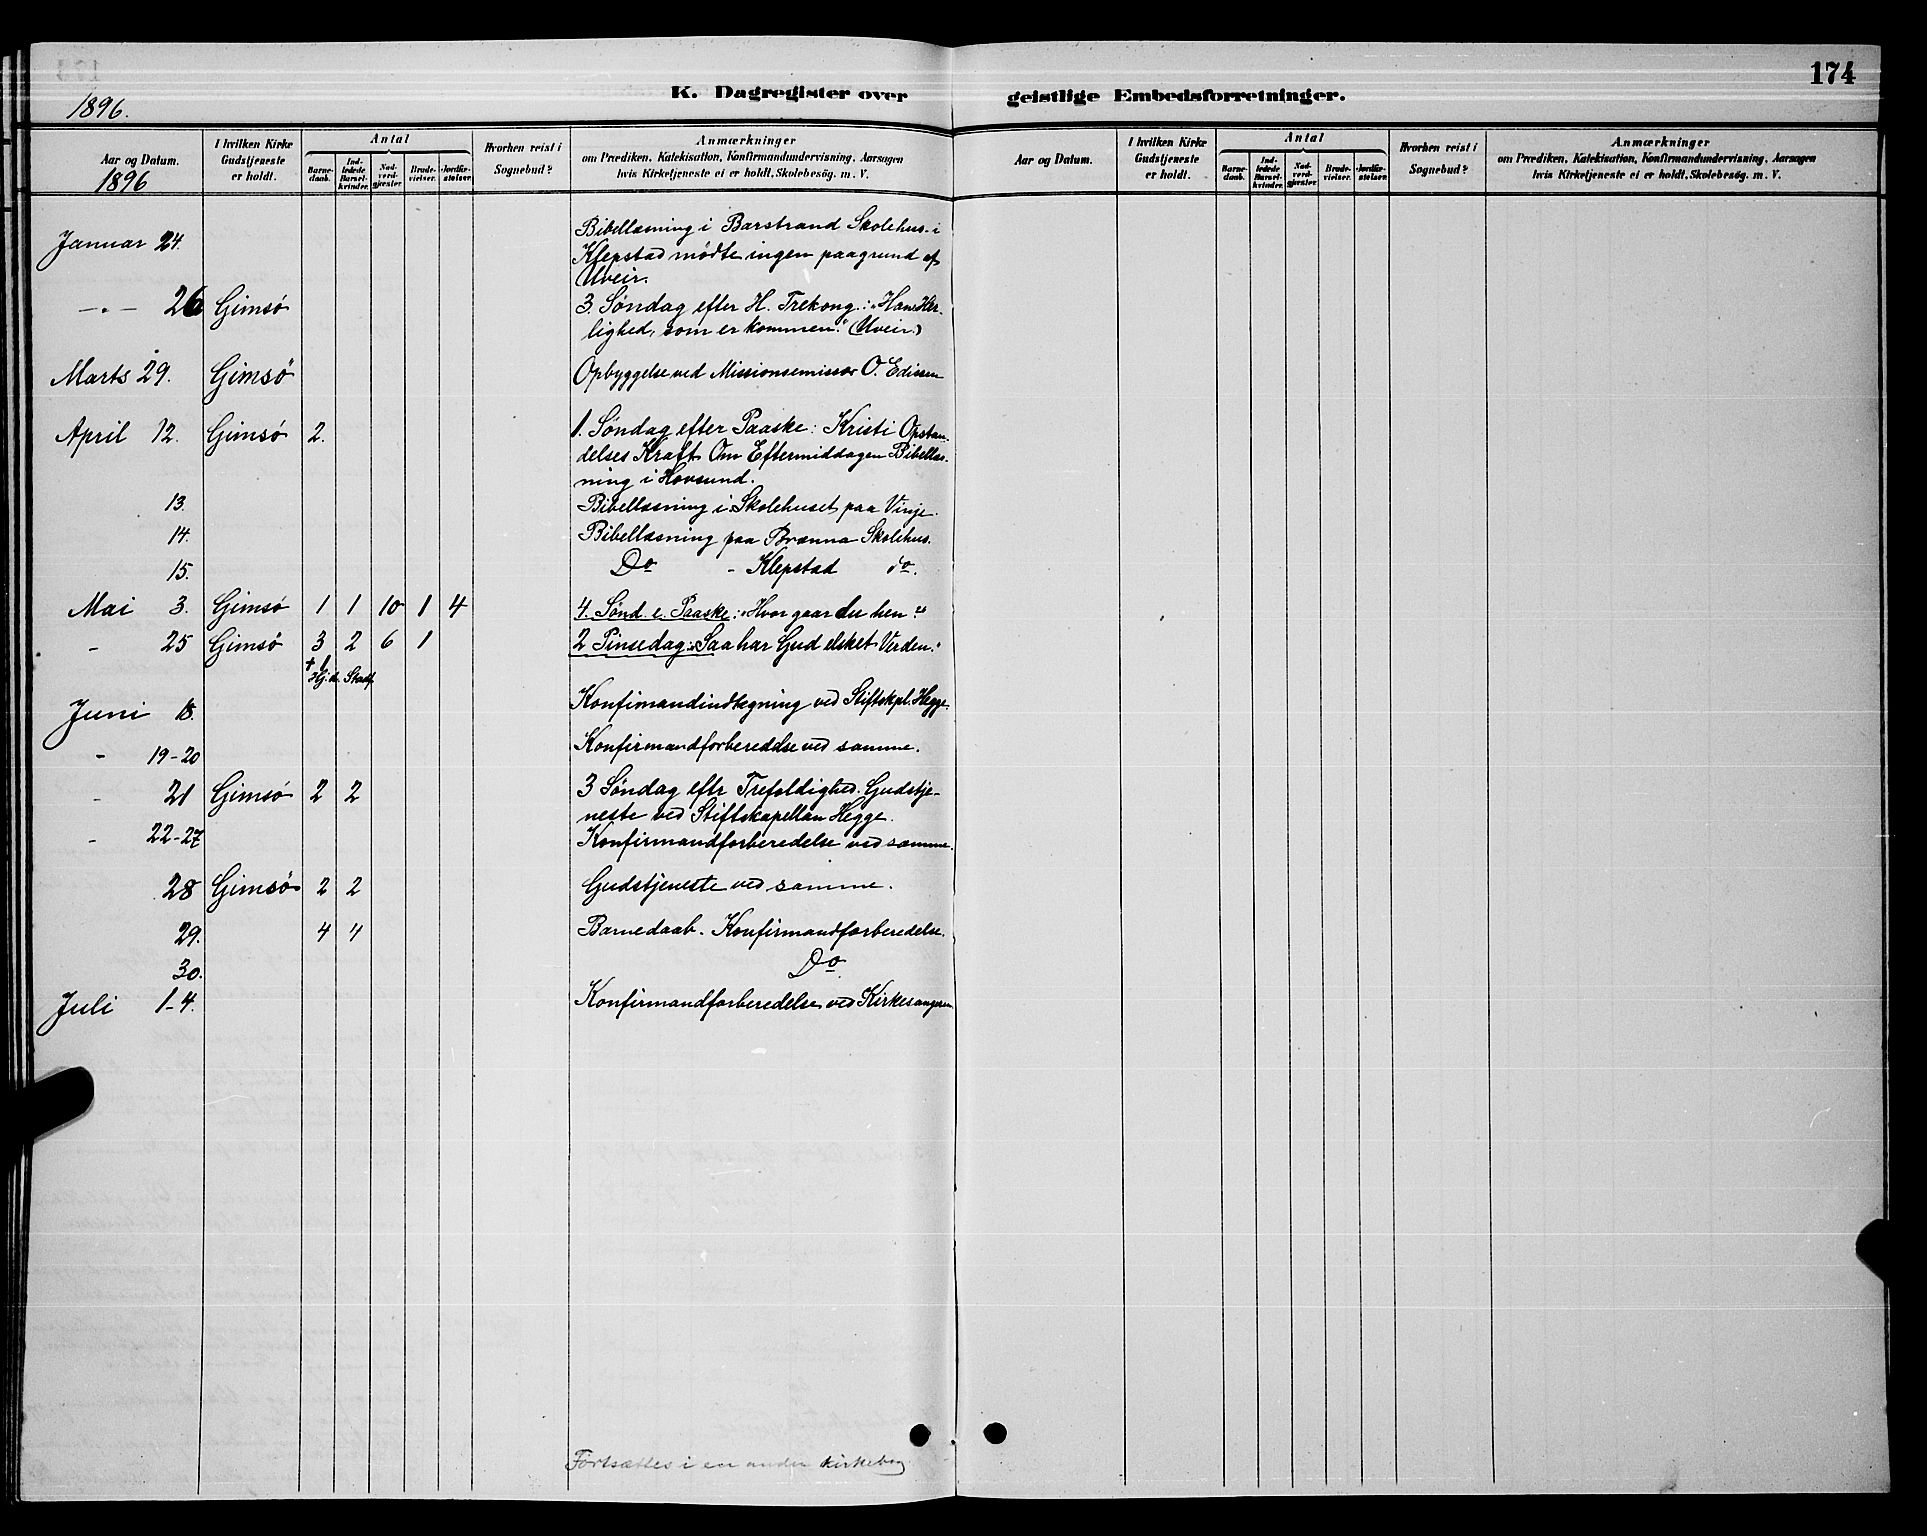 174
K. Dagregister over geistlige Embedsforretninger.
1896.
Aar og Datum.
1896
I hvilken Kirke
Gudstjeneste
er holdt.
Antal
Barne-
daab.
Ind-
ledede
Barsel-
kvinder.
Nad-
verd-
gjester.
Brude-
vielser.
Jordfæ-
stelser.
Hvorhen reist i
Sognebud?
Anmærkninger
om Prædiken, Katekisation, Konfirmandundervisning, Aarsagen
hvis Kirketjeneste ei er holdt, Skolebesøg. m. V.
Januar 24. Bibellæsning i Barstrand Skolehus - i
Klepstad mødte ingen paagrund af
Uveir.
-"- 26 Gimsø 3. Søndag efter H. Trekong.: "Hans Her-
lighed, som er kommen." (Uveir.)
Marts 29. Gimsø Opbyggelse ved Missionsemissær O. Edissen
April 12. Gimsø 2. 1. Søndag efter Paaske: Kristi Opstan-
delses Kraft. Om Eftermiddagen Bibellæs-
ning i Hovsund.
13. Bibellæsning i Skolehuset paa Vinje.
14. Bibellæsning paa Brænna Skolehus.
15. Do - Klepstad do.
Mai 3. Gimsø 1 1 10 1 4 4. Sønd. e. Paaske: "Hvor gaar du hen"
- 25 Gimsø 3 2 6 1 2 Pinsedag: "Saa har Gud elsket Verden."
+ 1
Hj.d. Stadf.
Juni 18. Konfirmandindtegning ved Stiftskpl. Hegge.
- 19-20 Konfirmandforberedelse ved samme.
- 21 Gimsø 2 2 3 Søndag eftr Trefoldighed. Gudstje-
neste ved Stiftskapellan Hegge.
- 22-27 Konfirmandforberedelse ved samme.
28 Gimsø 2 2 Gudstjeneste ved samme.
29. 4 4 Barnedaab. Konfirmandforberedelse.
30. Do
Juli 1-4. Konfirmandforberedelse ved Kirkesangeren
Fortsættes i en anden kirkebog
Aar og Datum.
I hvilken Kirke
Gudstjeneste
er holdt.
Antal
Barne-
daab.
Ind-
ledede
Barsel-
kvinder.
Nad-
verd-
gjester.
Brude-
vielser.
Jordfæ-
stelser.
Hvorhen reist i
Sognebud?
Anmærkninger
om Prædiken, Katekisation, Konfirmandundervisning, Aarsagen
hvis Kirketjeneste ei er holdt, Skolebesøg. m. V.